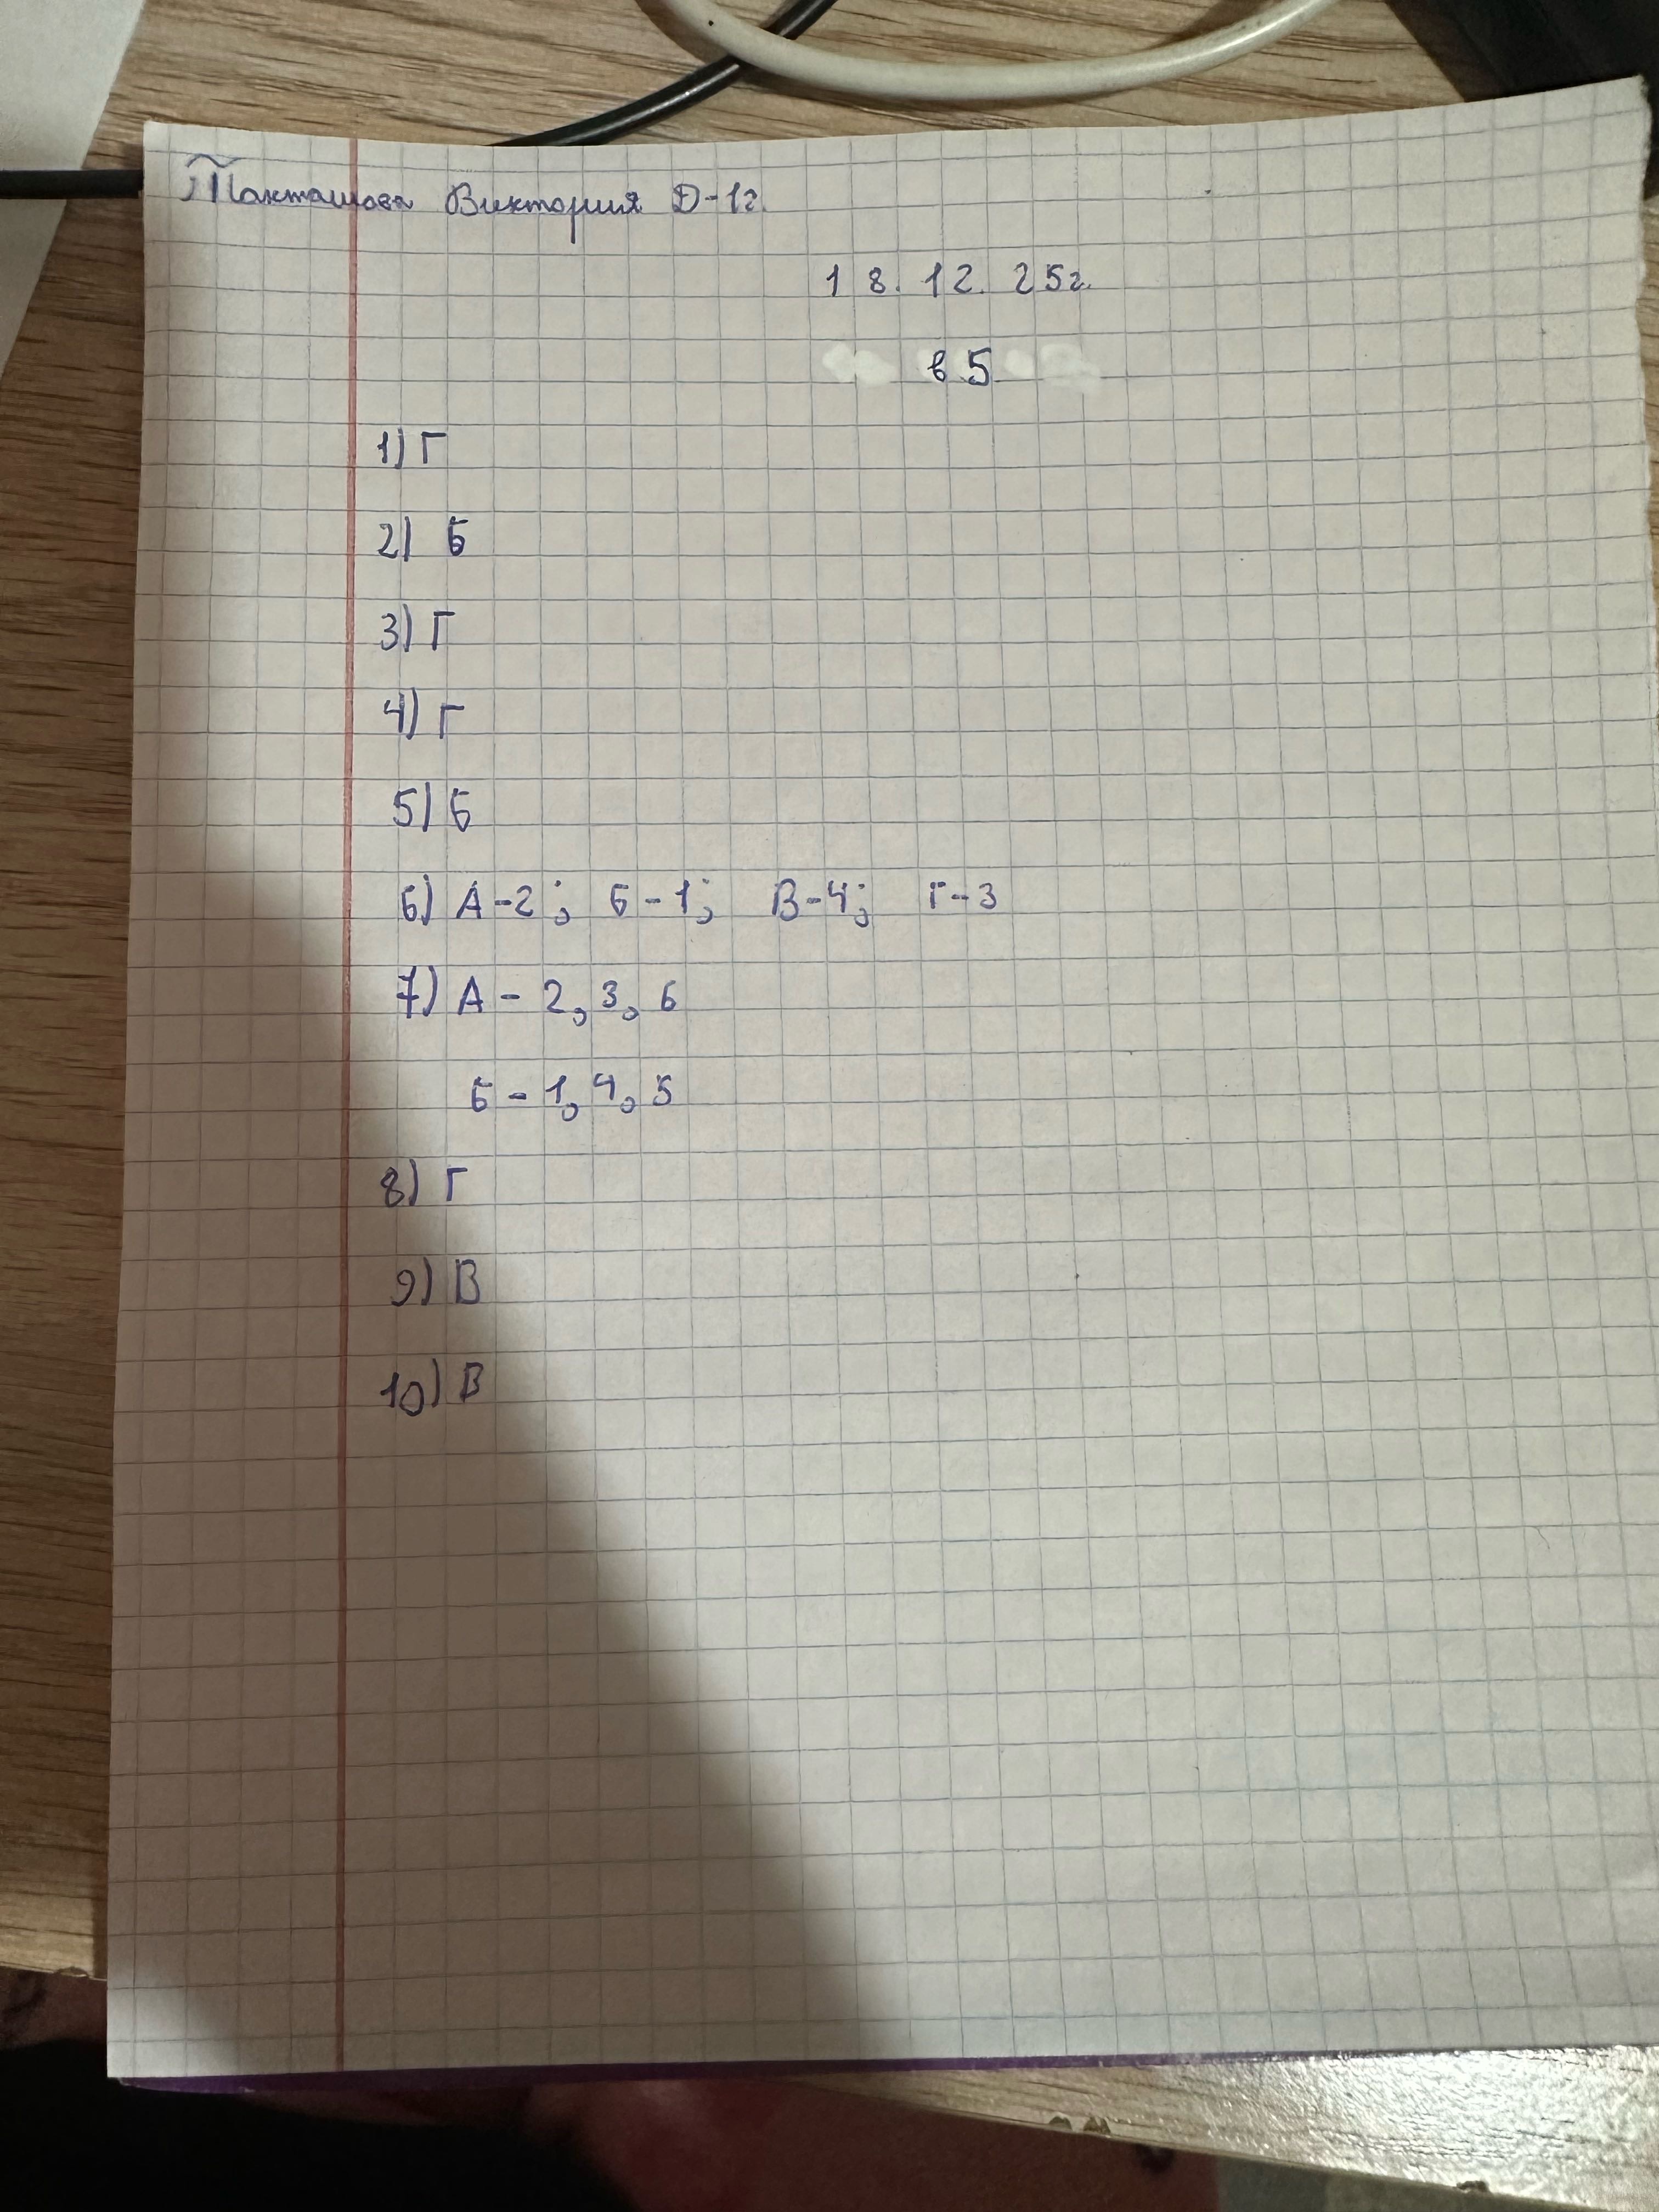 Такташова Виктория Д-1г.
18.12.25г.
в5
1) Г
2) Б
3) Г
4) Г
5) Б
6) А-2; Б-1; В-4; Г-3
7) А - 2, 3, 6
Б - 1, 4, 5
8) Г
9) В
10) В